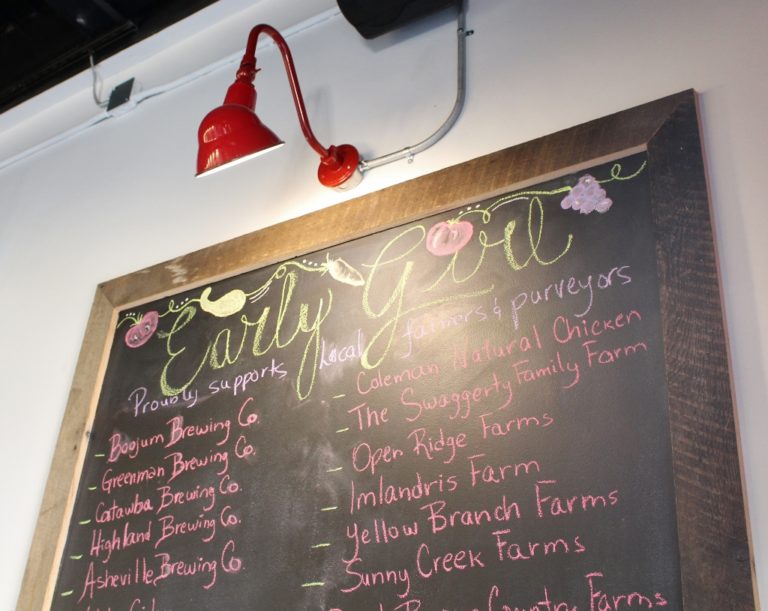 Early Girl
Proudly supports Local farmers & purveyors
- Boojum Brewing Co.
- Greenman Brewing Co.
- Catawba Brewing Co.
- Highland Brewing Co.
- Asheville Brewing Co.
- Coleman Natural Chicken
- The Swaggerty Family Farm
- Open Ridge Farms
- Imlandris Farm
- Yellow Branch Farms
- Sunny Creek Farms
Country Farms